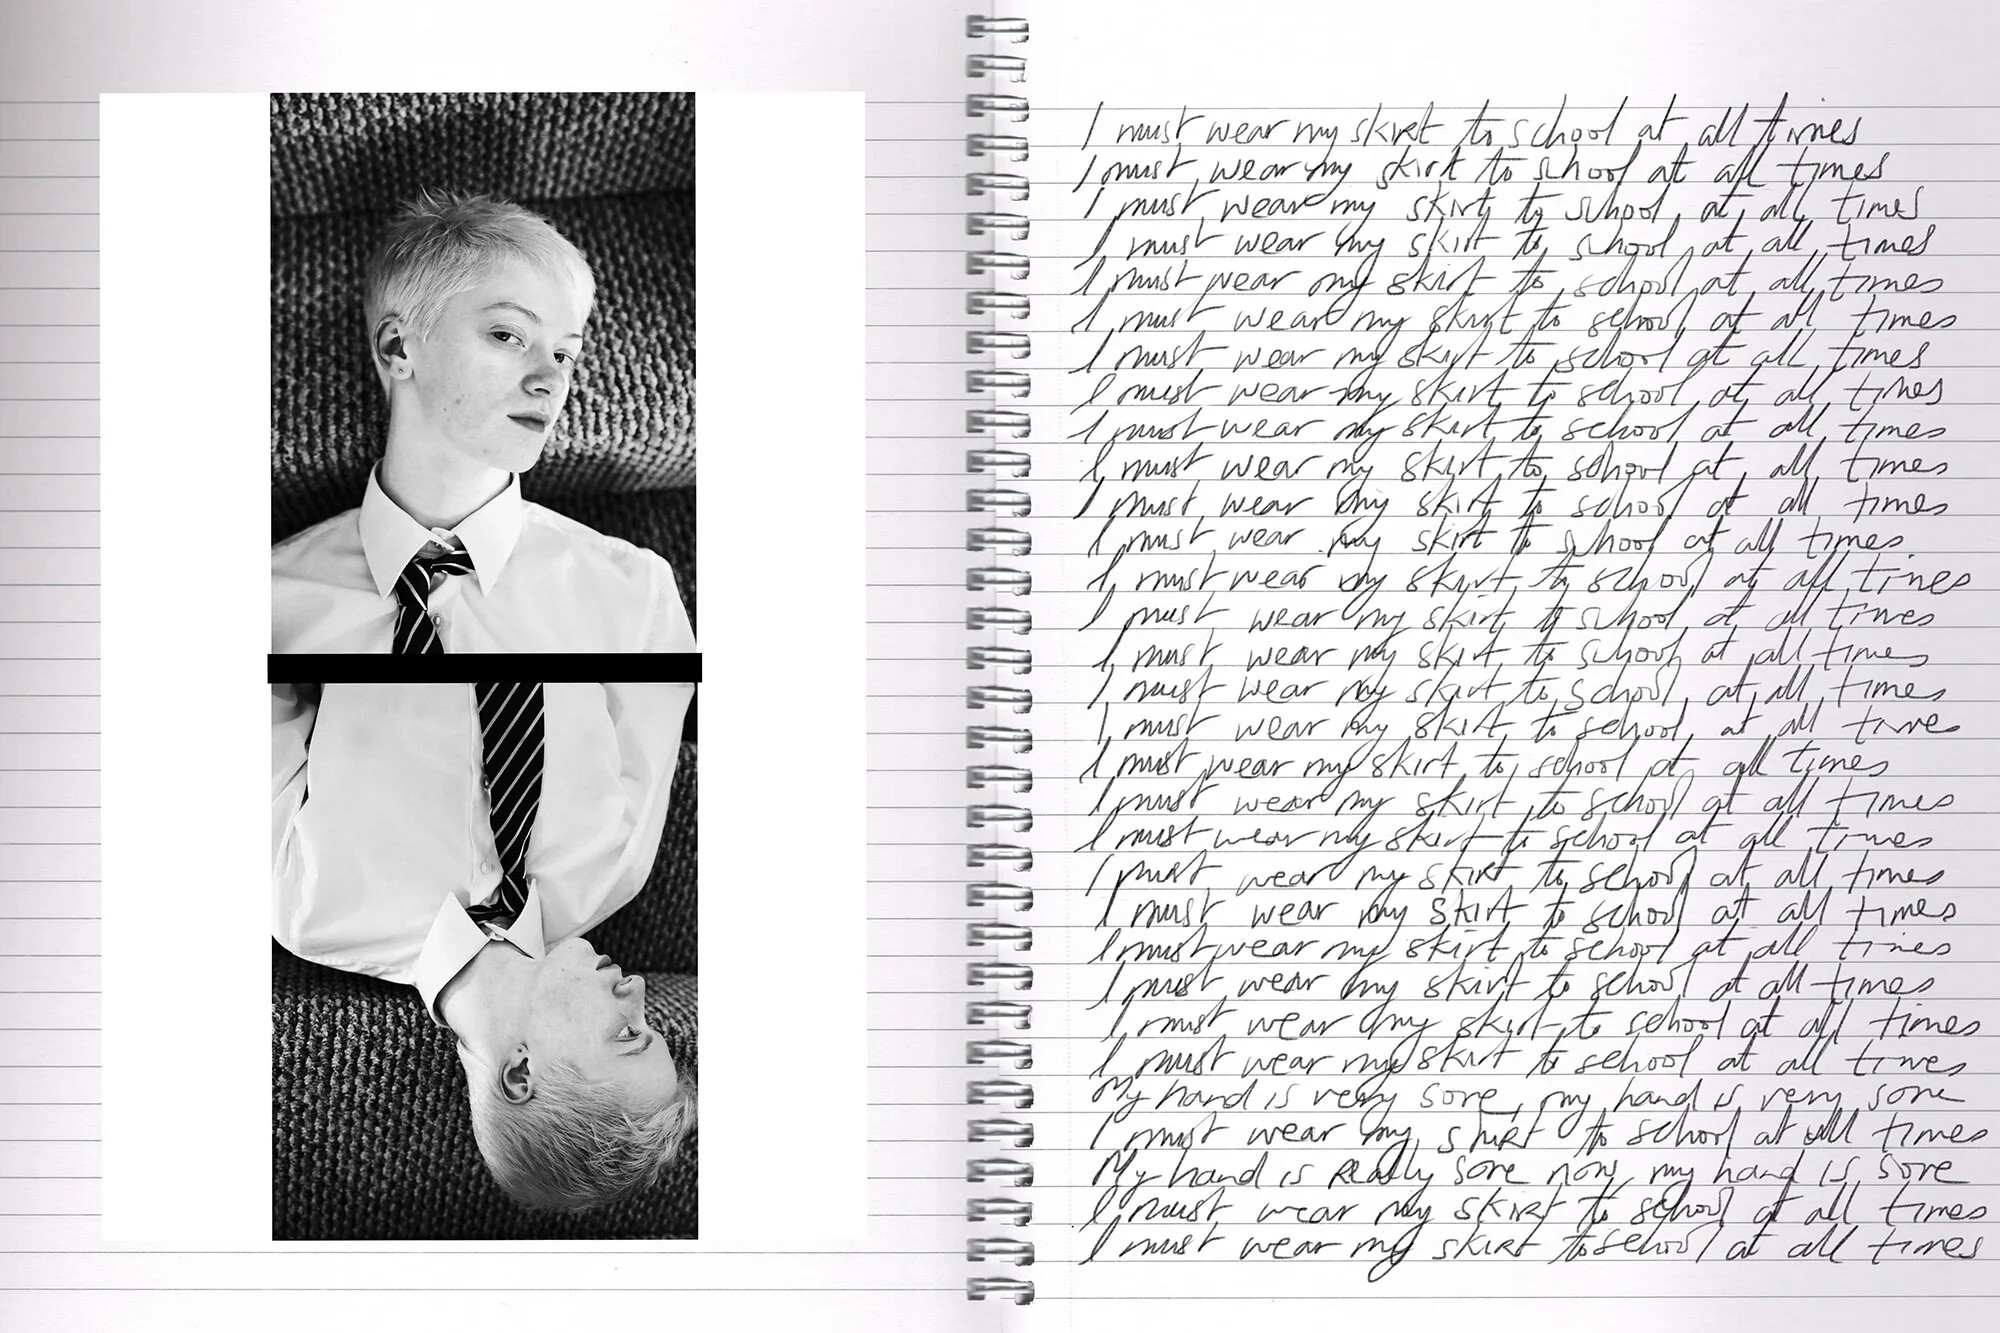 I must wear my skirt to school at all times
I must wear my skirt to school at all times
I must wear my skirt to school at all times
I must wear my skirt to school at all times
I must wear my skirt to school at all times
I must wear my skirt to school at all times
I must wear my skirt to school at all times
I must wear my skirt to school at all times
I must wear my skirt to school at all times
I must wear my skirt to school at all times
I must wear my skirt to school at all times
I must wear my skirt to school at all times
I must wear my skirt to school at all times
I must wear my skirt to school at all times
I must wear my skirt to school at all times
I must wear my skirt to school at all times
I must wear my skirt to school at all times
I must wear my skirt to school at all times
I must wear my skirt to school at all times
I must wear my skirt to school at all times
I must wear my skirt to school at all times
I must wear my skirt to school at all times
I must wear my skirt to school at all times
I must wear my skirt to school at all times
I must wear my skirt to school at all times
I must wear my skirt to school at all times
My hand is very sore, my hand is very sore
I must wear my skirt to school at all times
My hand is really sore now, my hand is sore
I must wear my skirt to school at all times
I must wear my skirt to school at all times